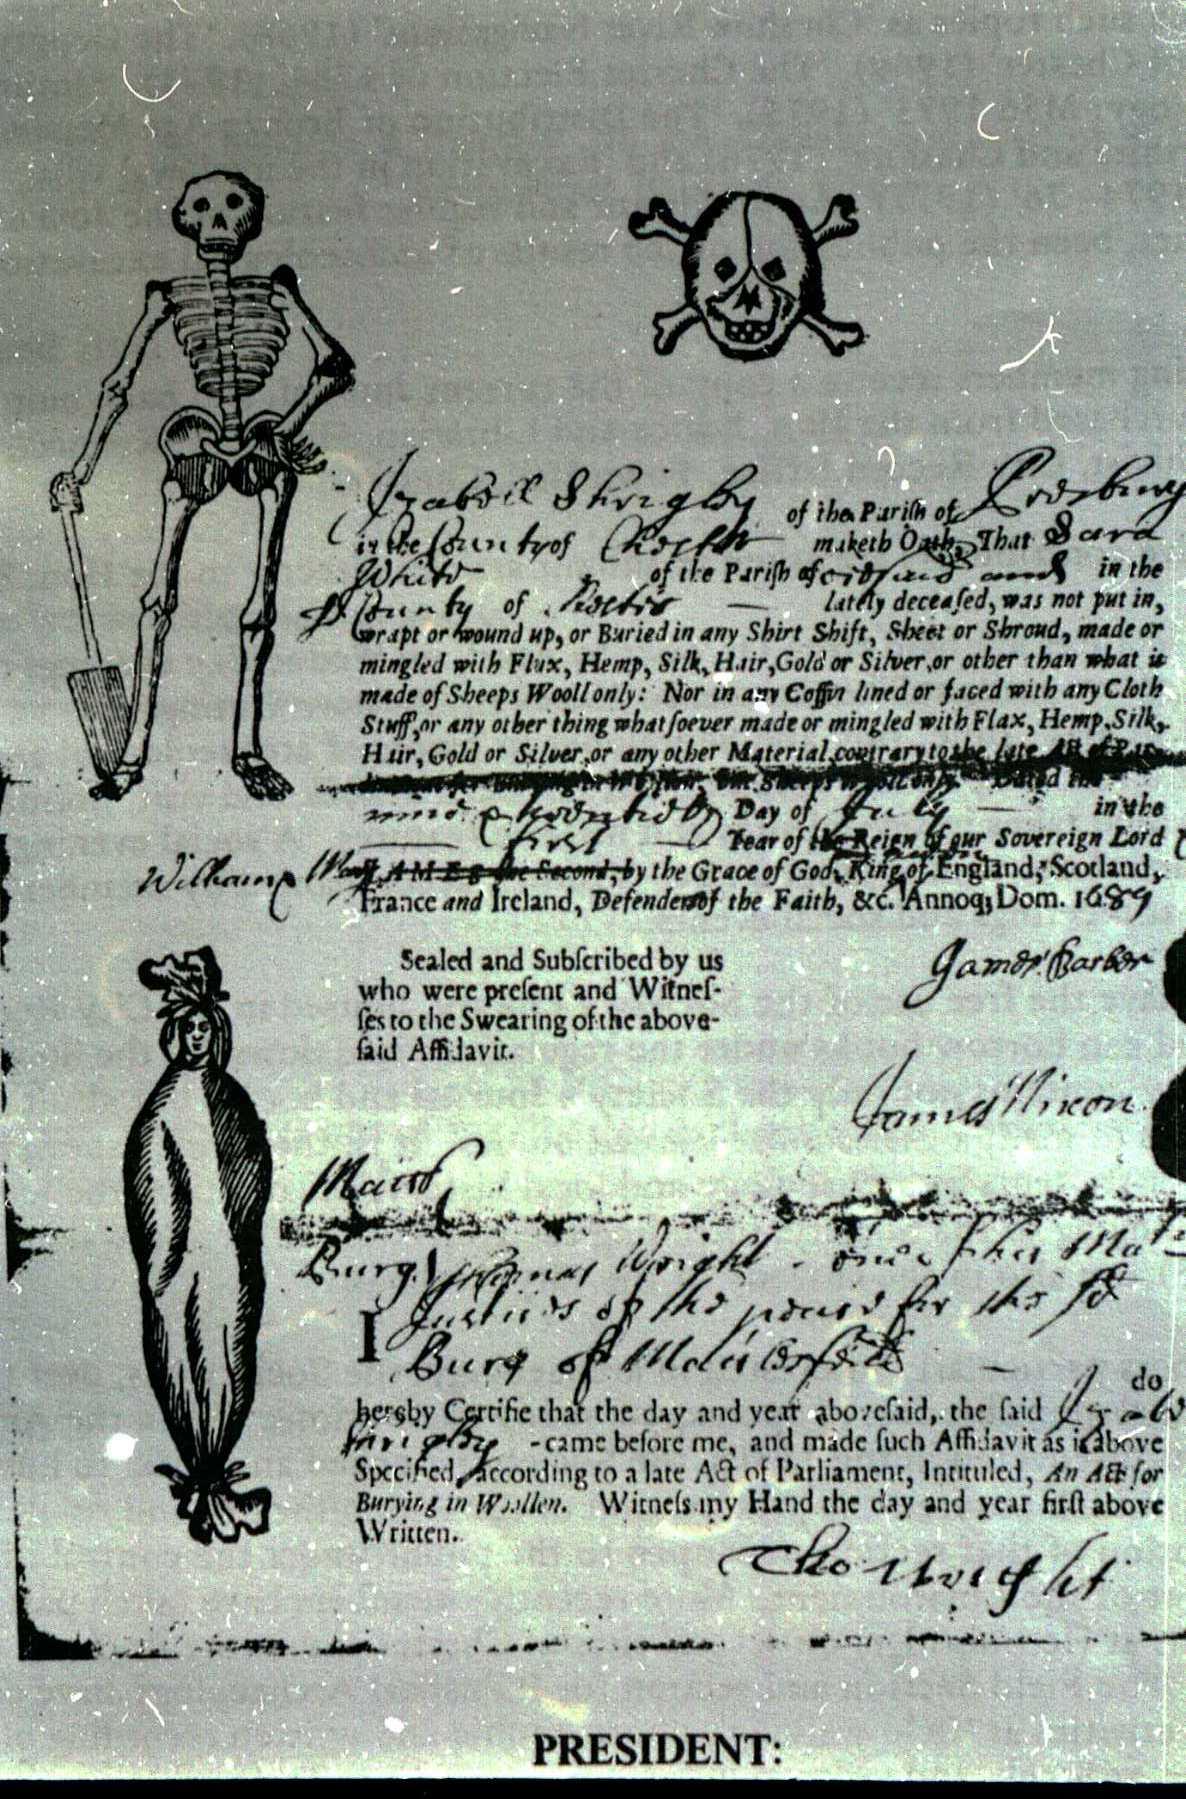 Izabell Shrigley of the Pariſh of Presbury
in the County of Chester maketh Oath, That Sara
White of the Pariſh of in the
County of lately deceaſed, was not put in,
wrapt or wound up, or Buried in any Shirt Shift, Sheet or Shroud, made or
mingled with Flax, Hemp, Silk, Hair, Gold or Silver, or other than what is
made of Sheeps Wooll only: Nor in any Coffin lined or faced with any Cloth
Stuff, or any other thing whatſoever made or mingled with Flax, Hemp, Silk,
Hair, Gold or Silver, or any other Material, contrary to the late Act of Par-
Sheeps Wooll only Dated the
nine & twentieth Day of July in the
first Year of the Reign of our Sovereign Lord
William & Mary JAMES the Second, by the Grace of God, King of England, Scotland,
France and Ireland, Defender of the Faith, &c. Annoq; Dom. 1689
Sealed and Subſcribed by us
who were preſent and Witneſ-
ſes to the Swearing of the above-
ſaid Affidavit.
James Barber
James Nixon
Burg I Thomas Wright one of their
Justices of the peace for the sd
Burg of
do
hereby Certifie that the day and year aboveſaid, the ſaid
Shrigley - came before me, and made ſuch Affidavit as is above
Specified, according to a late Act of Parliament, Intituled, An Act for
Burying in Woollen. Witneſs my Hand the day and year firſt above
Written.
Tho Wright
PRESIDENT: